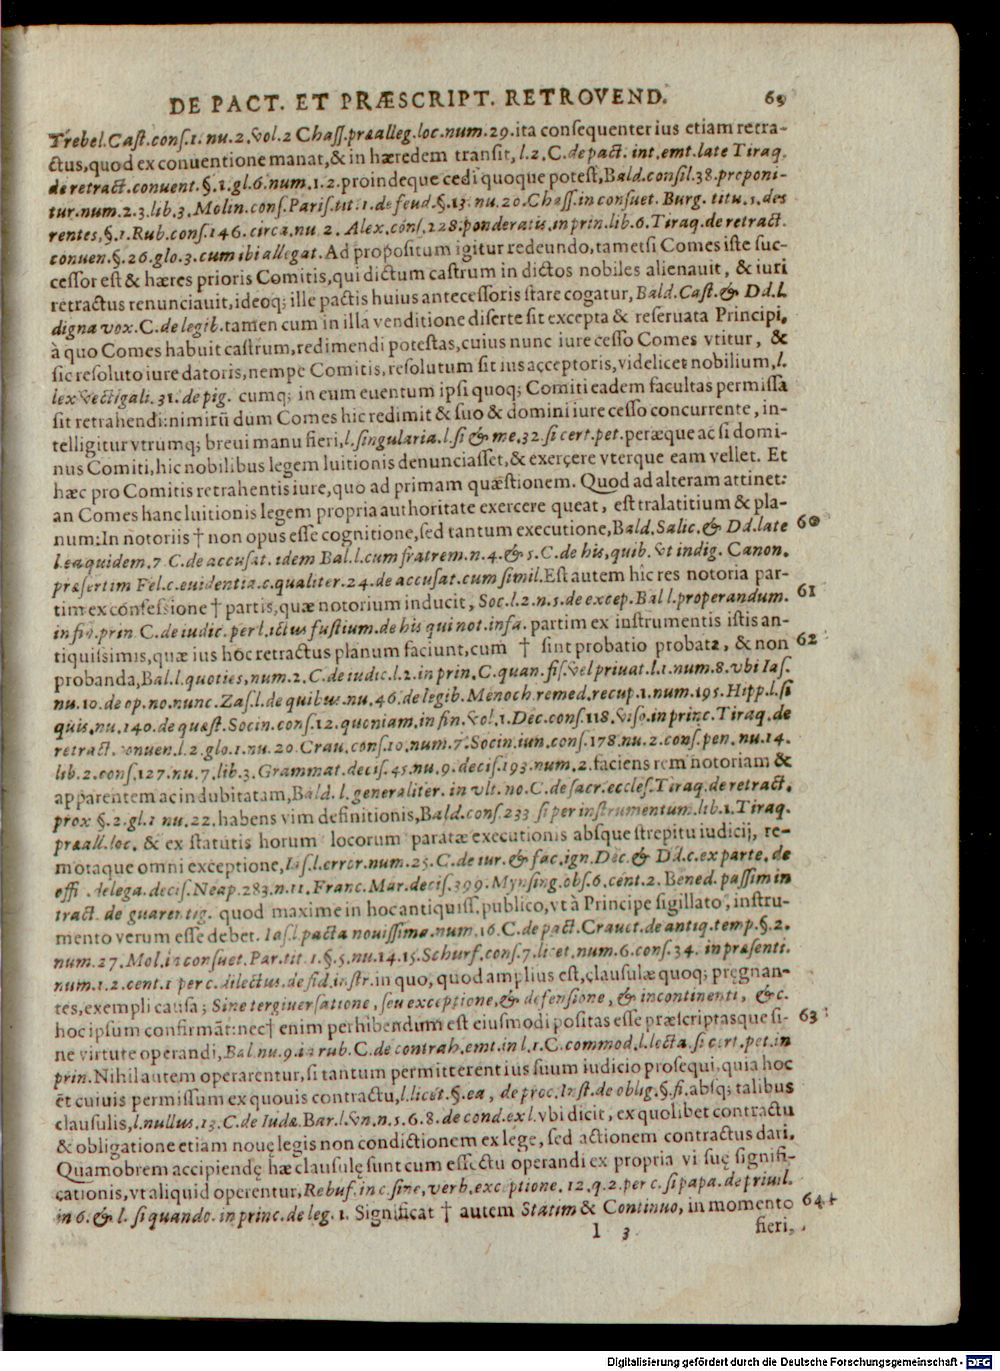 DE PACT. ET PRÆSCRIPT. RETROVEND. 69
Trebel. Cast. cons. 1. nu. 2. vol. 2 Chass. præalleg. loc. num. 29. ita consequenter ius etiam retra-
ctus, quod ex conuentione manat, & in hæredem transit, l. 2. C. de pact. int. emt. late Tiraq.
de retract. conuent. §. 1. gl. 6. num. 1. 2. proindeque cedi quoque potest, Bald. consil. 38. preponi-
tur. num. 2. 3. lib. 3. Molin. cons. Paris. tit. 1. de feud. §. 13. nu. 20. Chass. in consuet. Burg. titu. 5. des
rentes, §. 1. Rub. cons. 146. circa. nu. 2. Alex. cons. 228. ponderatis. in prin. lib. 6. Tiraq. de retract.
conuen. §. 26. glo. 3. cum ibi allegat. Ad propositum igitur redeundo, tametsi Comes iste suc-
cessor est & hæres prioris Comitis, qui dictum castrum in dictos nobiles alienauit, & iuri
retractus renunciauit, ideoq; ille pactis huius antecessoris stare cogatur, Bald. Cast. & Dd. l.
digna vox. C. de legib. tamen cum in illa venditione diserte sit excepta & reseruata Principi,
à quo Comes habuit castrum, redimendi potestas, cuius nunc iure cesso Comes vtitur, &
sic resoluto iure datoris, nempe Comitis, resolutum sit ius acceptoris, videlicet nobilium, l.
lex vectigali. 31. de pig. cumq; in eum euentum ipsi quoq; Comiti eadem facultas permissa
sit retrahendi: nimirū dum Comes hic redimit & suo & domini iure cesso concurrente, in-
telligitur vtrumq; breui manu fieri, l. singularia. l. si & me. 32. si cert. pet. peræque ac si domi-
nus Comiti, hic nobilibus legem luitionis denunciasset, & exerçere vterque eam vellet. Et
hæc pro Comitis retrahentis iure, quo ad primam quæstionem. Quod ad alteram attinet:
an Comes hanc luitionis legem propria authoritate exercere queat, est tralatitium & pla-
num: In notoriis † non opus esse cognitione, sed tantum executione, Bald. Salic. & Dd. late 60
l. ea quidem. 7 C. de accusat. idem Bal. l. cum fratrem. n. 4. & 5. C. de his, quib. vt indig. Canon.
præsertim Fel. c. euidentia. c. qualiter. 24. de accusat. cum simil. Est autem hîc res notoria par-
tim ex confessione † partis, quæ notorium inducit, Soc. l. 2. n. 5. de excep. Bal l. properandum. 61
in fin. prin. C. de iudic. per l. ictus fustium. de his qui not. infa. partim ex instrumentis istis an-
tiquissimis, quæ ius hoc retractus planum faciunt, cum † sint probatio probata, & non 62
probanda, Bal. l. quoties, num. 2. C. de iudic. l. 2. in prin. C. quan. fis. vel priuat. l. 1. num. 8. vbi Ias.
nu. 10. de op. no. nunc. Zas. l. de quibus. nu. 46. de legib. Menoch. remed. recup. 1. num. 195. Hipp. l. si
quis. nu. 140. de quæst. Socin. cons. 12. quoniam. in fin. vol. 1. Dec. cons. 118. viso. in princ. Tiraq. de
retract. conuen. l. 2. glo. 1. nu. 20. Crau. cons. 10. num. 7. Socin. iun. cons. 178. nu. 2. cons. pen. nu. 14.
lib. 2. cons. 127. nu. 7. lib. 3. Grammat. decis. 45. nu. 9. decis. 193. num. 2. faciens rem notoriam &
apparentem ac indubitatam, Bald. l. generaliter. in vlt. no. C. de sacr. eccles. Tiraq. de retract.
prox §. 2. gl. 1 nu. 22. habens vim definitionis, Bald. cons. 233 si per instrumentum. lib. 1. Tiraq.
præall. loc. & ex statutis horum locorum paratæ executionis absque strepitu iudicij, re-
motaque omni exceptione, Ias. l. error. num. 25. C. de iur. & fac. ign. Dec. & Dd. c. ex parte. de
offi. delega. decis. Neap. 283. n. 11. Franc. Mar. decis. 399. Mynsing. obs. 6. cent. 2. Bened. passim in
tract. de guarentig. quod maxime in hoc antiquiss. publico, vt à Principe sigillato, instru-
mento verum esse debet. Ias. l. pacta nouissima. num. 16. C. de pact. Crauet. de antiq. temp. §. 2.
num. 27. Mol. in consuet. Par. tit. 1. §. 5. nu. 14. 15. Schurf. cons. 7. licet. num. 6. cons. 34. in præsenti.
num. 1. 2. cent. 1 per c. dilectus. de fid. instr. in quo, quod amplius est, clausulæ quoq; pregnan-
tes, exempli causa; Sine tergiuersatione, seu exceptione, & defensione, & incontinenti, &c.
hoc ipsum confirmāt: nec † enim perhibendum est eiusmodi positas esse præscriptasque si- 63
ne virtute operandi, Bal. nu. 9. in rub. C. de contrah. emt. in l. 1. C. commod. l. lecta. si cert. pet. in
prin. Nihil autem operarentur, si tantum permitterent ius suum iudicio prosequi, quia hoc
ēt cuiuis permissum ex quouis contractu, l. licet. §. ea, de proc. Inst. de oblig. §. fi. absq; talibus
clausulis, l. nullus. 13. C. de Iudæ. Bar. l. vn. n. 5. 6. 8. de cond. ex l. vbi dicit, ex quolibet contractu
& obligatione etiam nouę legis non condictionem ex lege, sed actionem contractus dari.
Quamobrem accipiendę hæ clausulę sunt cum effectu operandi ex propria vi suę signifi-
cationis, vt aliquid operentur, Rebuf. in c. sine, verb. exceptione. 12. q. 2. per c. si papa. de priuil.
in 6. & l. si quando. in princ. de leg. 1. Significat † autem Statim & Continuo, in momento 64
l 3 fieri,
Digitalisierung gefördert durch die Deutsche Forschungsgemeinschaft - DFG